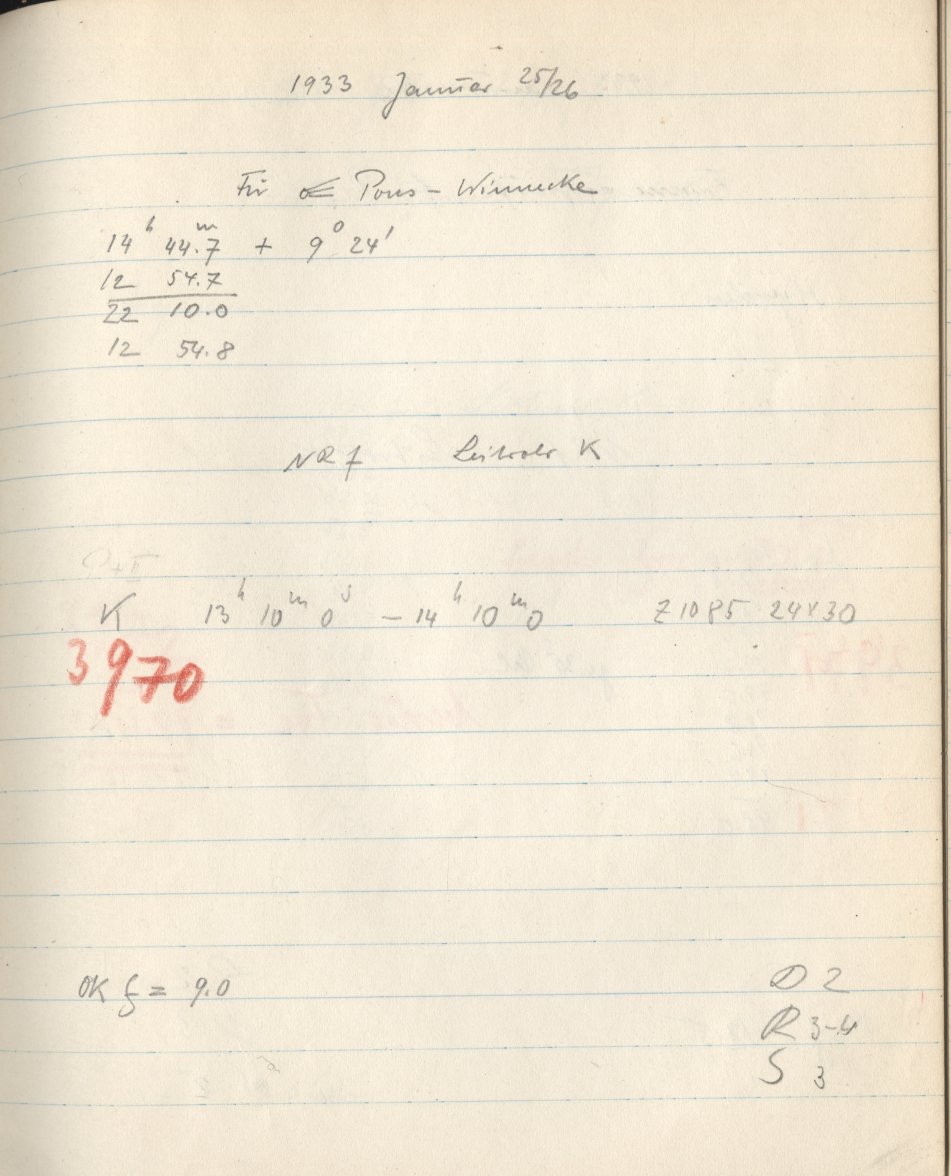 1933 Januar 25/26
Für ☄ Pons-Winnecke
14ʰ 44.7ᵐ + 9° 24'
12 54.7
22 10.0
12 54.8
Leitrohr K
K 13ʰ 10ᵐ 0ˢ - 14ʰ 10ᵐ 0 Z1085 24x30
3970
OK f = 9.0
D 2
R 3-4
S 3